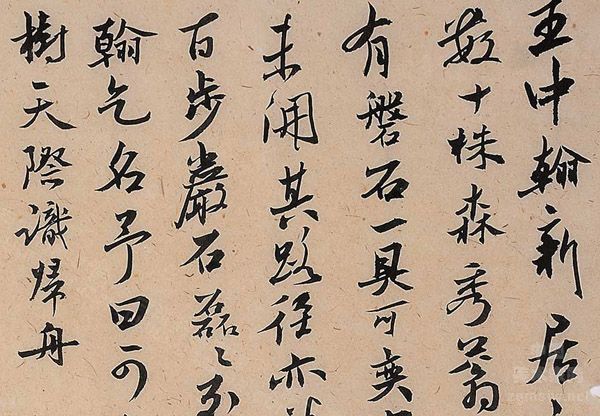 王中翰新居
數十株森秀蓊
有磐石一具可奕
未開其路徑亦
百步巖石磊〻
翰乞名予曰可
樹天際識歸舟